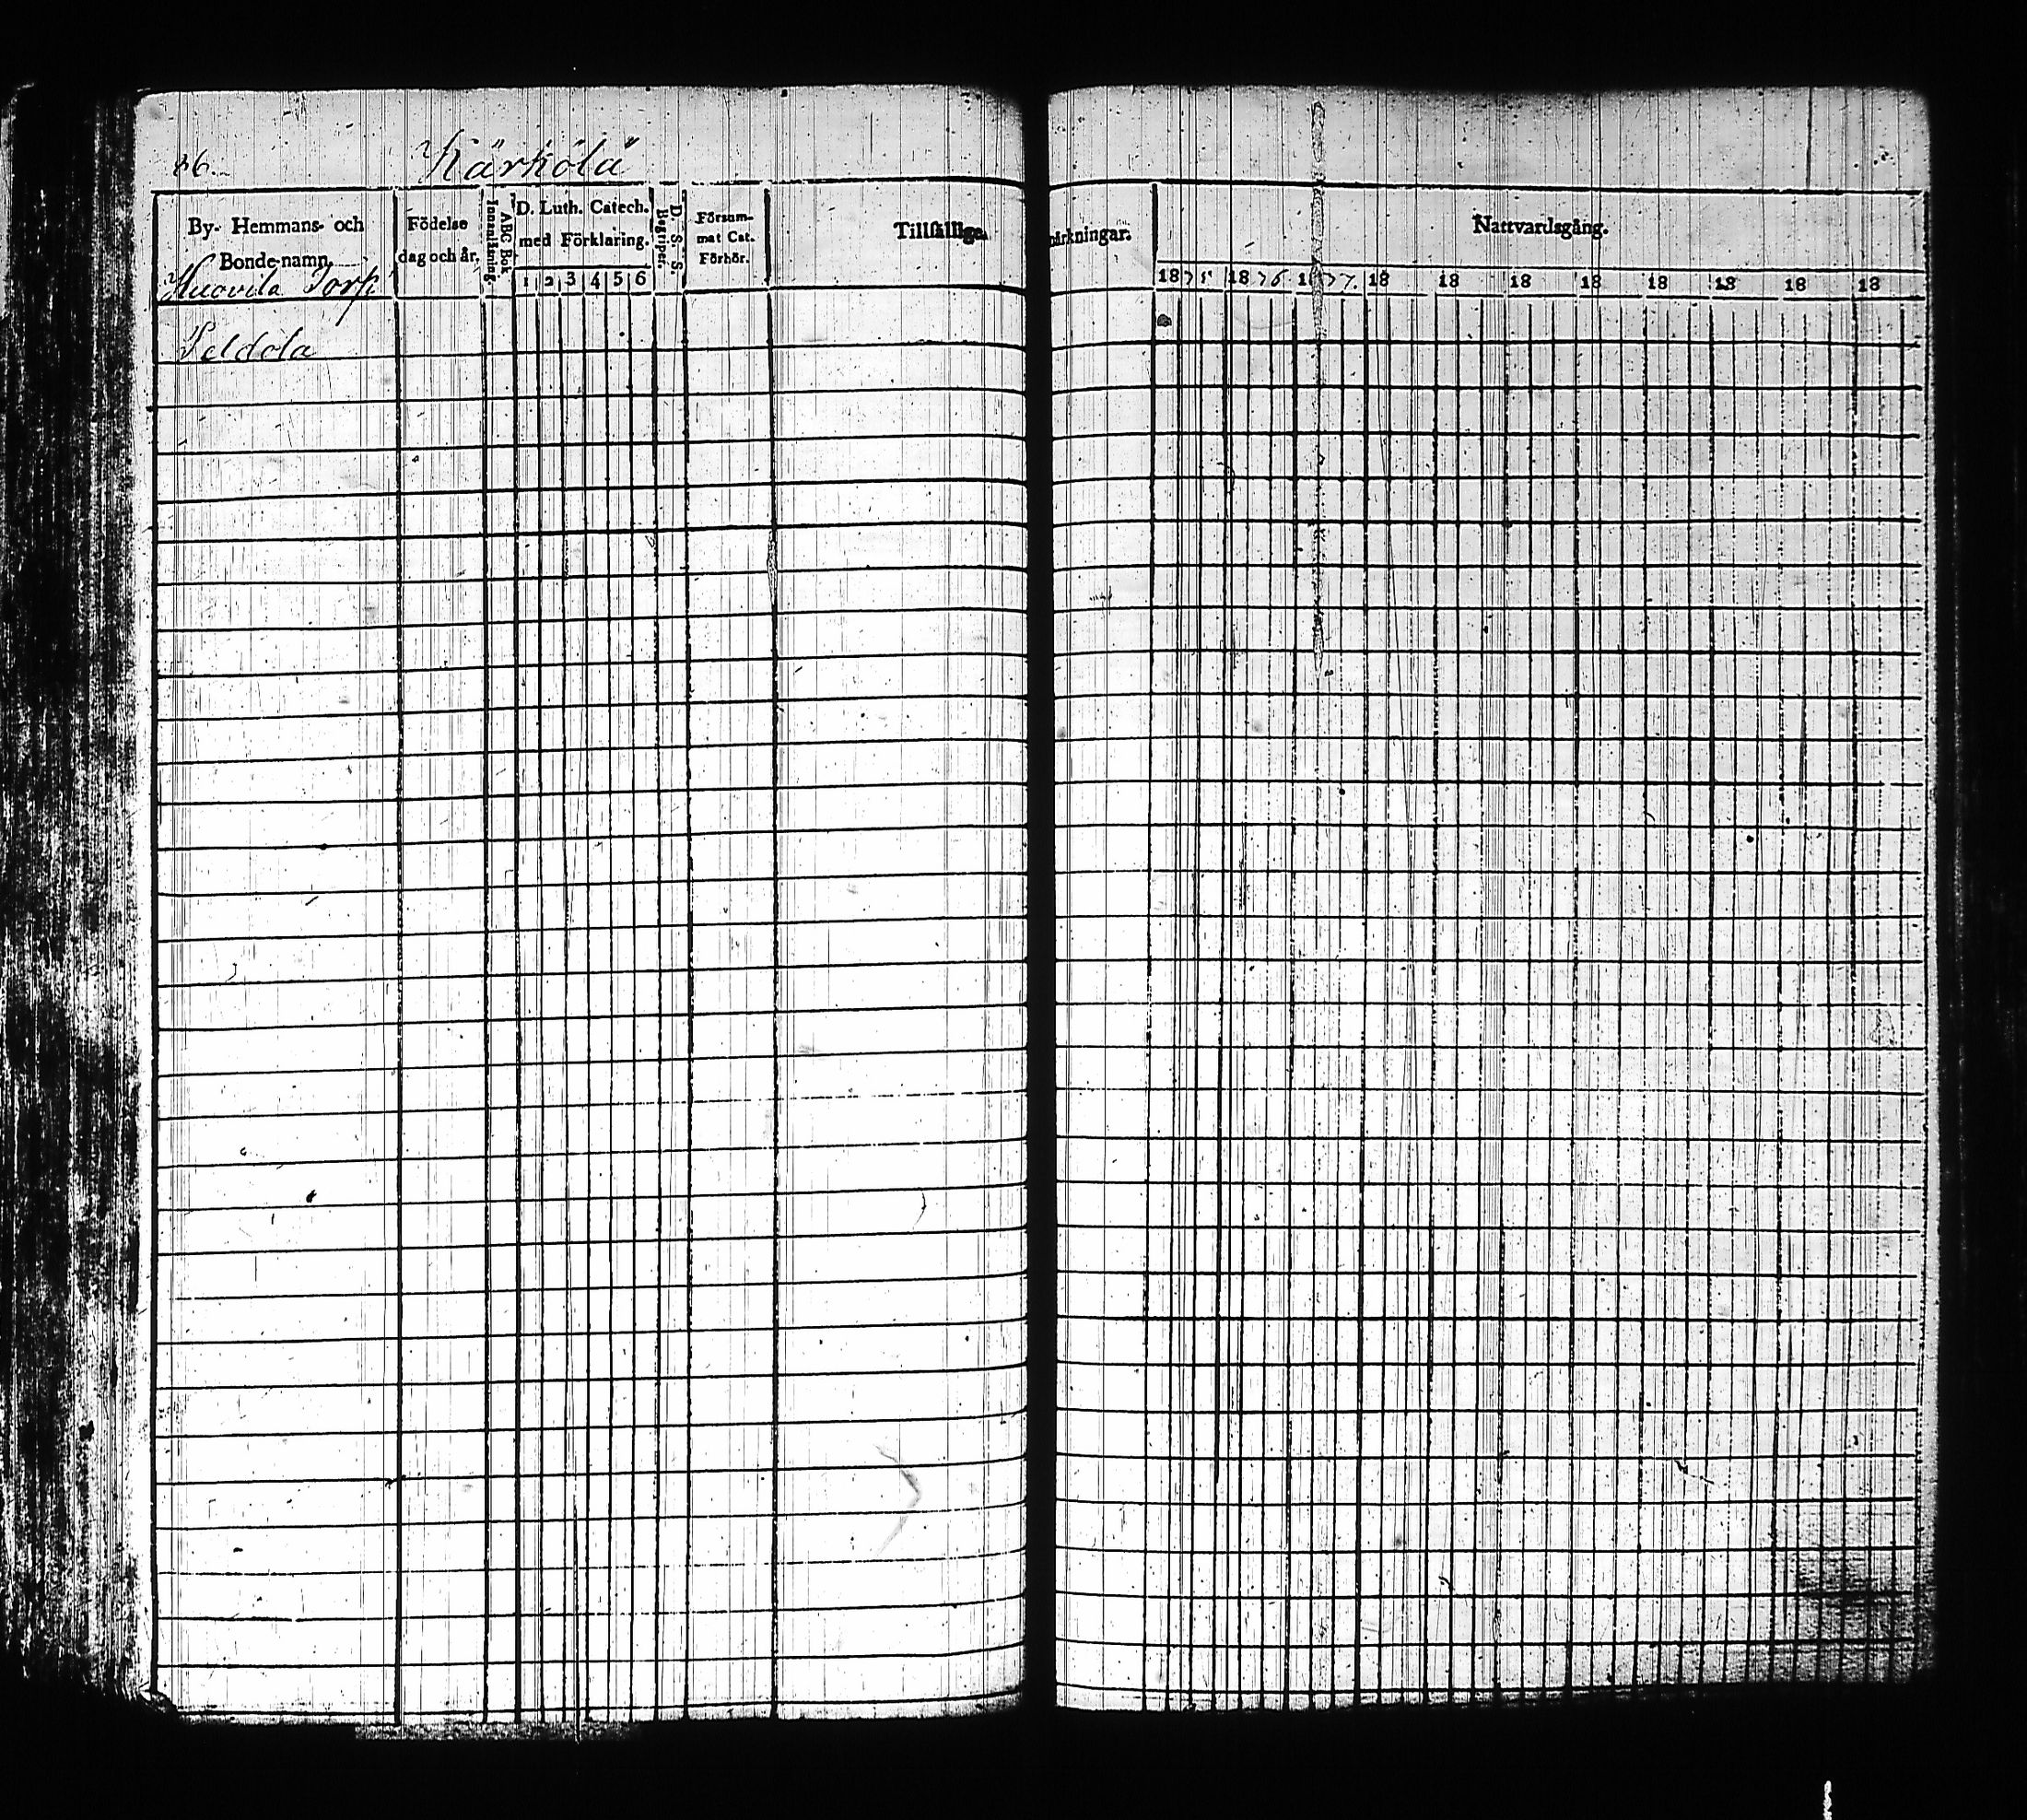 86.
Kärkölä
By- Hemmans- och
Bonde-namn.
Födelse
dag och år.
ABC Bok
Innanläsning.
D. Luth. Catech.
med Förklaring.
1 2 3 4 5 6
D. S. S.
Begriper.
Försum-
mat Cat.
Förhör.
Tillfällige
märkningar.
Nattvardsgång.
1875 1876 1877. 18 18 18 18 18 18 18 18
Huovila Torp
Peldola